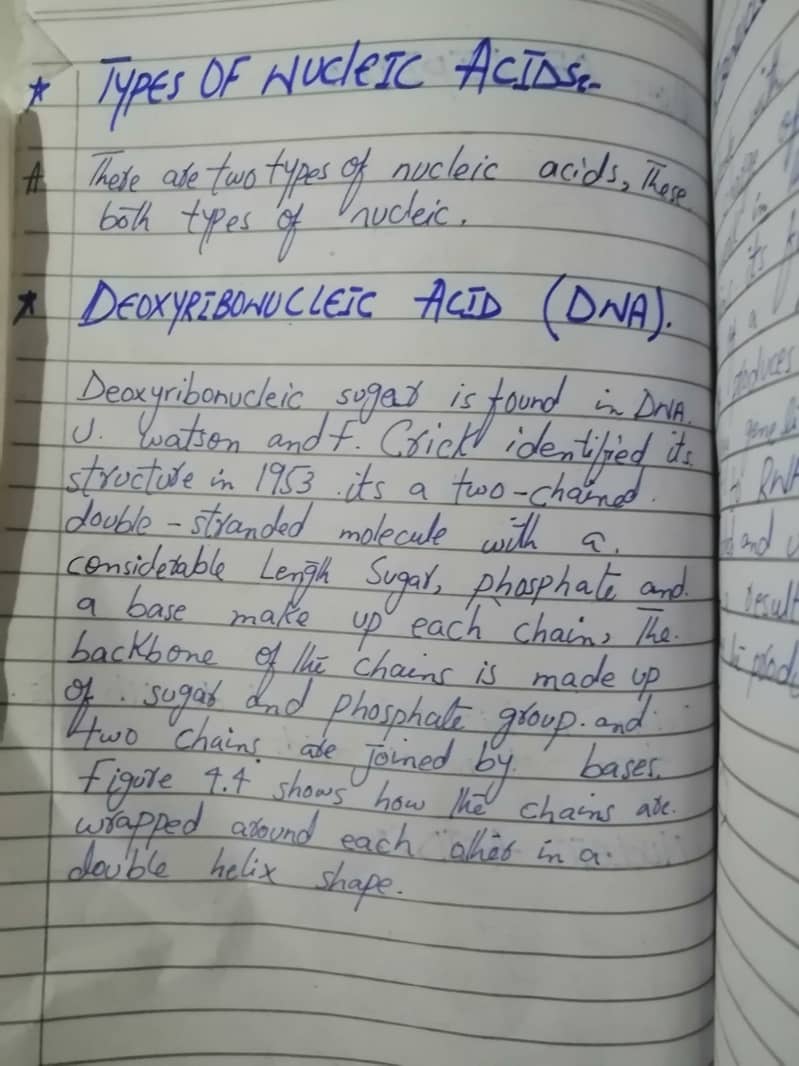 * TYPES OF NUCLEIC ACIDS:-
A There are two types of nucleic acids, These
both types of nucleic.
* DEOXYRIBONUCLEIC ACID (DNA).
Deoxyribonucleic sugar is found in DNA.
J. Watson and F. Crick identified its
structure in 1953 its a two-chained.
double-stranded molecule with a.
considerable Length Sugar, phosphate and.
a base make up each chain, The.
backbone of the chains is made up
of. sugar and phosphate group. and
two chains are joined by. bases.
Figure 4.4 shows how the chains are.
wrapped around each other in a.
double helix shape.